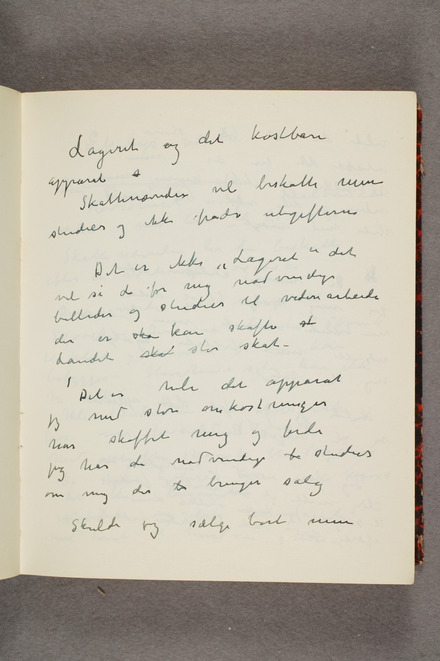 Lageret og det kostbare
apparat
Skattemændene vil beskatte mine
studier og ikke fradr utgifterne
Det er ikke „Lageret" det
vil si de for mig nødvendige
billeder og studier til videre arbeide
der er kan skaffe
landet stor skat –
Det er hele det apparat
jeg med store omkostninger
har skaffet mig og fordi
jeg har de nødvendige studier
om mig der bringer salg
Skulde jeg sælge bort mine